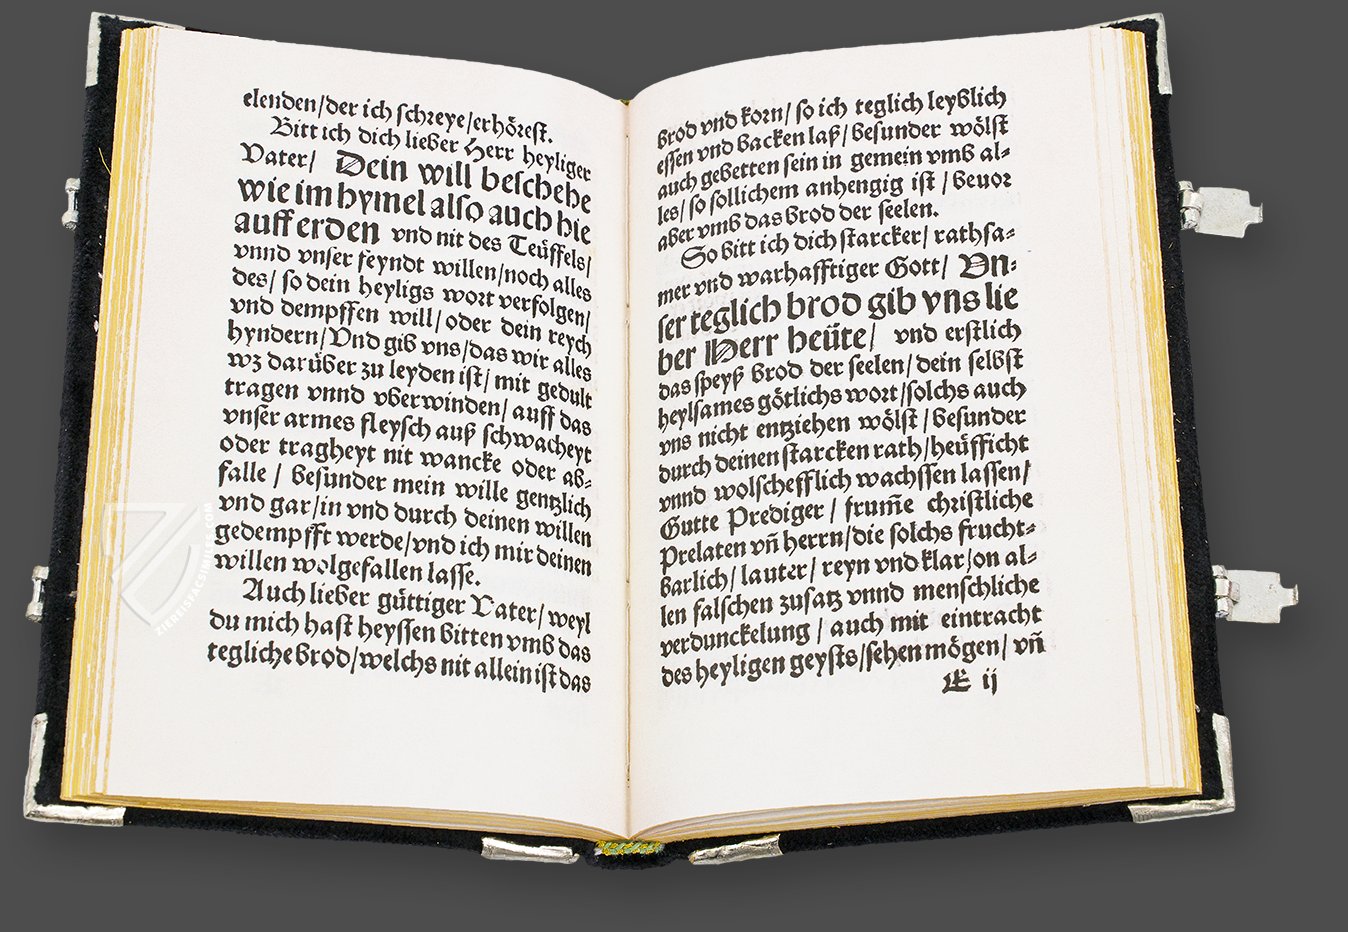 elenden/der ich schreye/erhörest.
Bitt ich dich lieber Herr heyliger
Vater/ Dein will beschehe
wie im hymel also auch hie
auff erden vnd nit des Teüffels/
vnnd vnser feyndt willen/noch alles
des/ so dein heyligs wort verfolgen/
vnd dempffen will/ oder dein reych
hyndern/Vnd gib vns/das wir alles
wz darüber zu leyden ist/ mit gedult
tragen vnnd vberwinden/ auff das
vnser armes fleysch auß schwacheyt
oder tragheyt nit wancke oder ab⸗
falle / besunder mein wille gentzlich
vnd gar/in vnd durch deinen willen
gedempfft werde/vnd ich mir deinen
willen wolgefallen lasse.
Auch lieber güttiger Vater/ weyl
du mich hast heyssen bitten vmb das
tegliche brod/welchs nit allein ist das
brod vnd korn/ so ich teglich leyblich
essen vnd backen laß/ besunder wölst
auch gebetten sein in gemein vmb al⸗
les/ so sollichem anhengig ist / beuor
aber vmb das brod der seelen.
So bitt ich dich starcker/ rathsa⸗
mer vnd warhafftiger Gott/ Vn⸗
ser teglich brod gib vns lie
ber Herr heüte/ vnd erstlich
das speyß brod der seelen/dein selbst
heylsames götlichs wort/solchs auch
vns nicht entziehen wölst/ besunder
durch deinen starcken rath/heüfficht
vnnd wolschefflich wachssen lassen/
Gutte Prediger / frum̃e christliche
Prelaten vñ herrn/die solchs frucht⸗
barlich/ lauter/ reyn vnd klar/on al⸗
len falschen zusatz vnnd menschliche
verdunckelung / auch mit eintracht
des heyligen geysts/sehen mögen/ vñ
E ij
ZIEREISFACSIMILES.COM